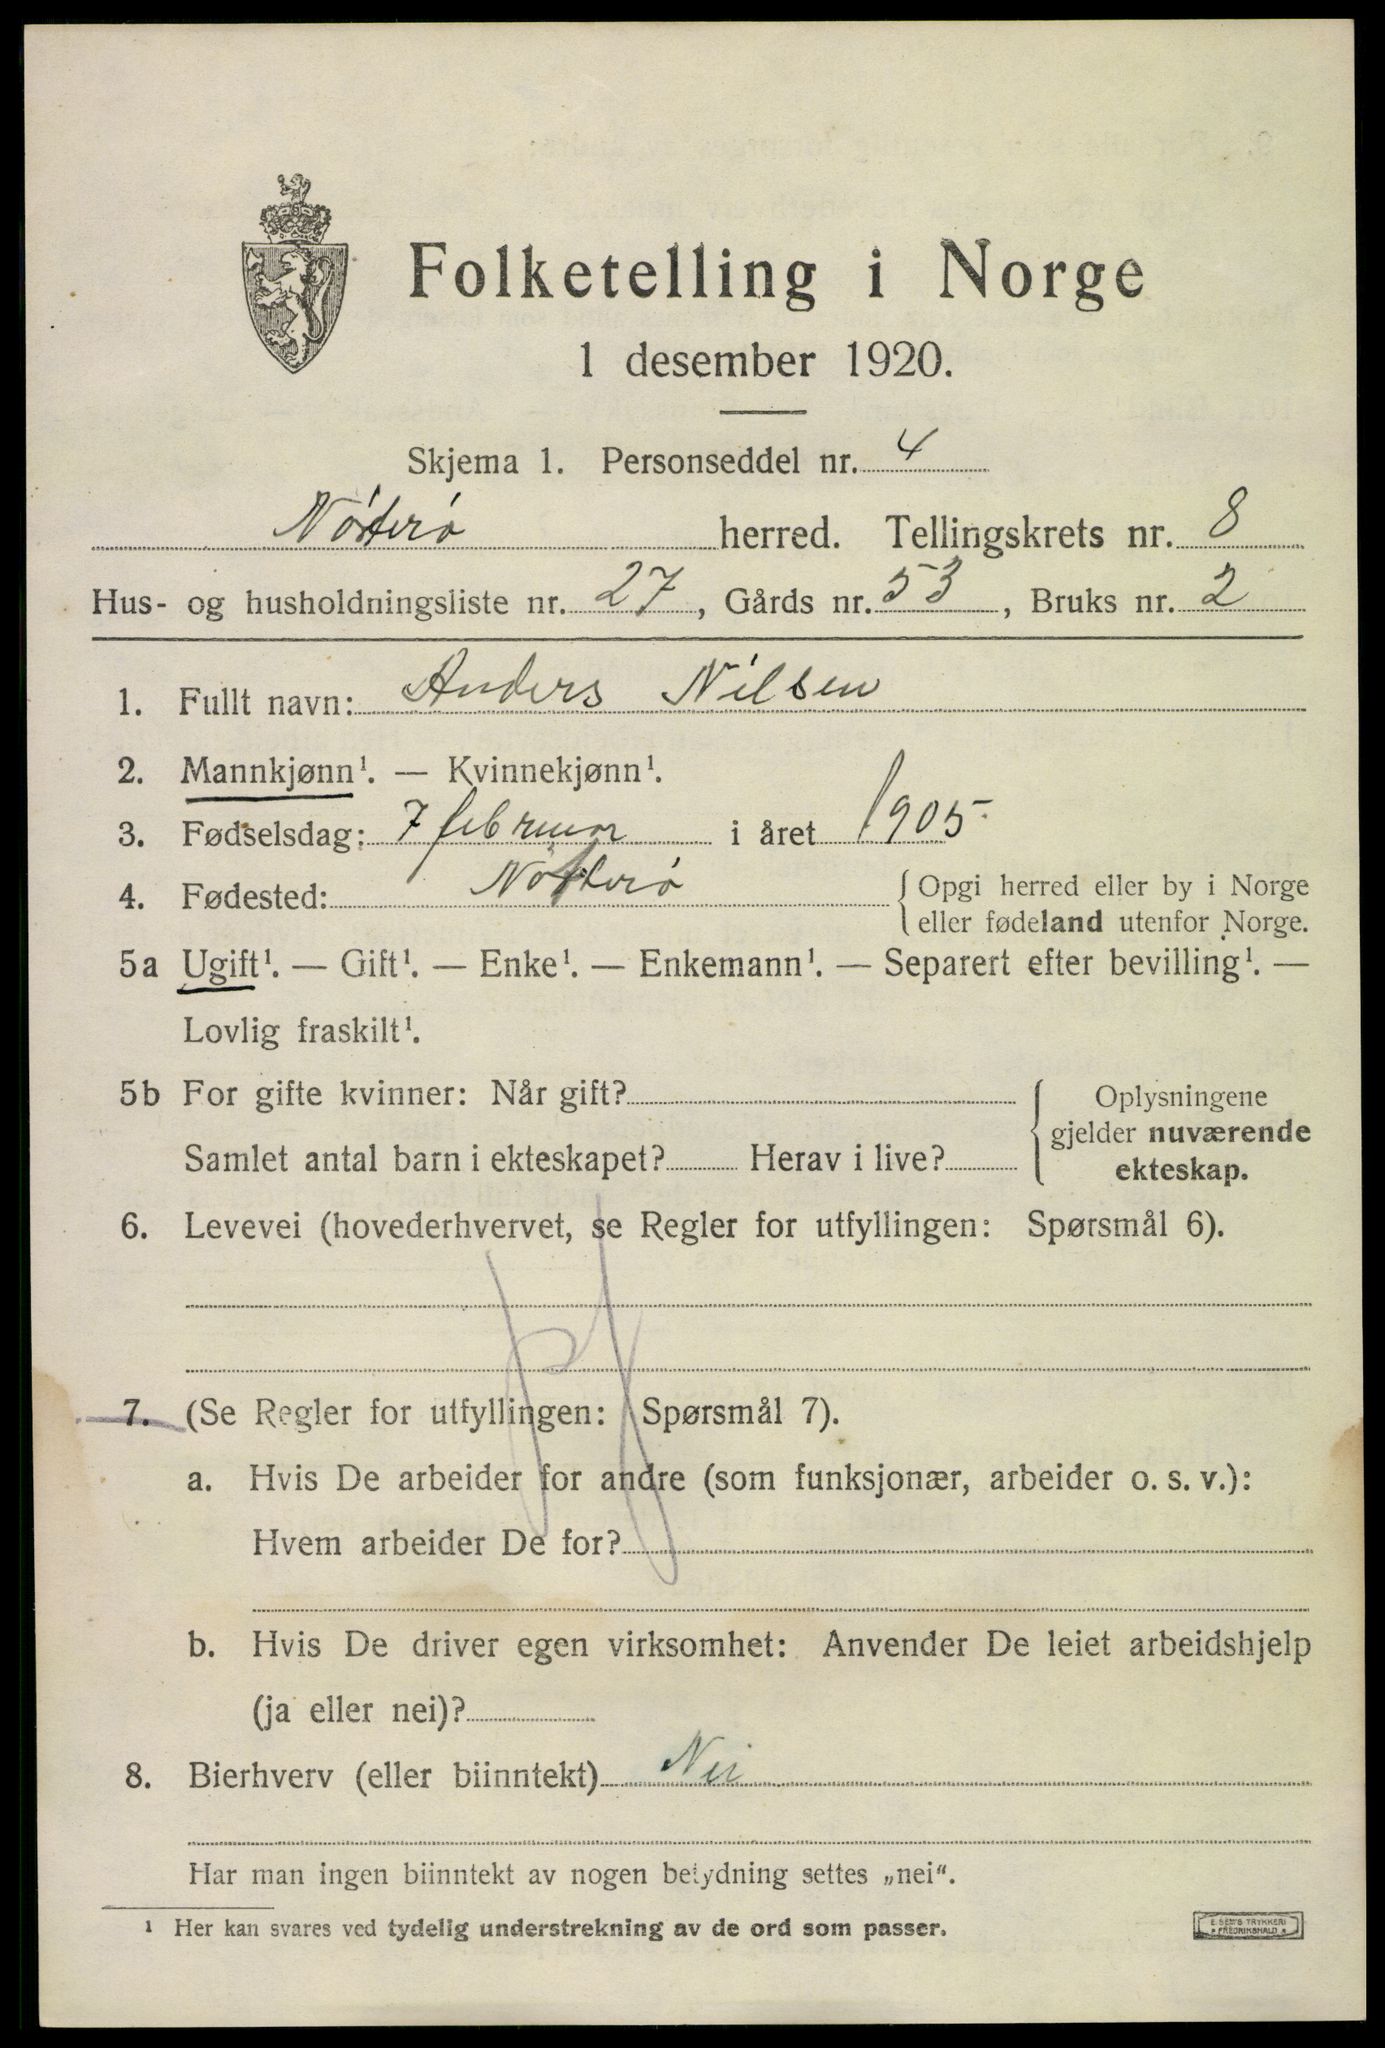 Folketelling i Norge
1 desember 1920.
Skjema 1. Personseddel nr. 4
Nötterö herred. Tellingskrets nr. 8
Hus- og husholdningsliste nr. 27, Gårds nr. 53, Bruks nr. 2
1. Fullt navn: Anders Nilsen
2. Mannkjønn¹. — Kvinnekjønn¹.
3. Fødselsdag: 7 februar i året 1905
4. Fødested: Nötterö { Opgi herred eller by i Norge
eller fødeland utenfor Norge.
5a Ugift¹. — Gift¹. — Enke¹. — Enkemann¹. — Separert efter bevilling¹. —
Lovlig fraskilt¹.
5b For gifte kvinner: Når gift? { Oplysningene
gjelder nuværende
Samlet antal barn i ekteskapet? Herav i live? ekteskap.
6. Levevei (hovederhvervet, se Regler for utfyllingen: Spørsmål 6).
7. (Se Regler for utfyllingen: Spørsmål 7).
a. Hvis De arbeider for andre (som funksjonær, arbeider o. s. v.):
Hvem arbeider De for?
b. Hvis De driver egen virksomhet: Anvender De leiet arbeidshjelp
(ja eller nei)?
8. Bierhverv (eller biinntekt) Nei
Har man ingen biinntekt av nogen betydning settes „nei“.
¹ Her kan svares ved tydelig understrekning av de ord som passer.
E. SEM'S TRYKKERI
FREDRIKSHALD